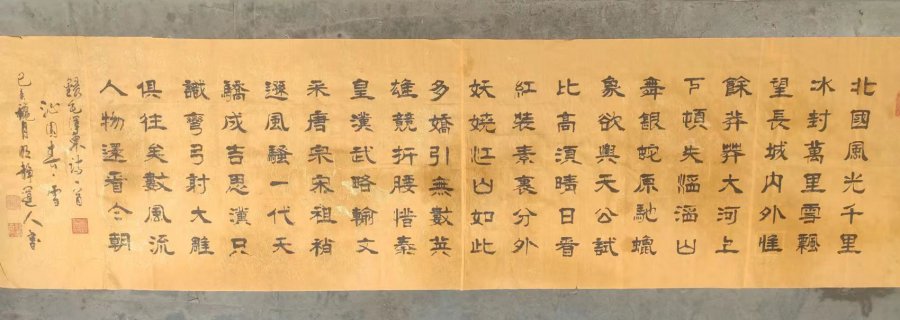 北國風光千里
冰封萬里雪飄
望長城內外惟
餘莽莽大河上
下頓失滔滔山
舞銀蛇原馳蠟
象欲與天公試
比高須晴日看
紅裝素裹分外
妖嬈江山如此
多嬌引無數英
雄競折腰惜秦
皇漢武略輸文
采唐宗宋祖稍
遜風騷一代天
驕成吉思漢只
識彎弓射大雕
俱往矣數風流
人物還看今朝
錄毛澤東詩一首
沁園春雪